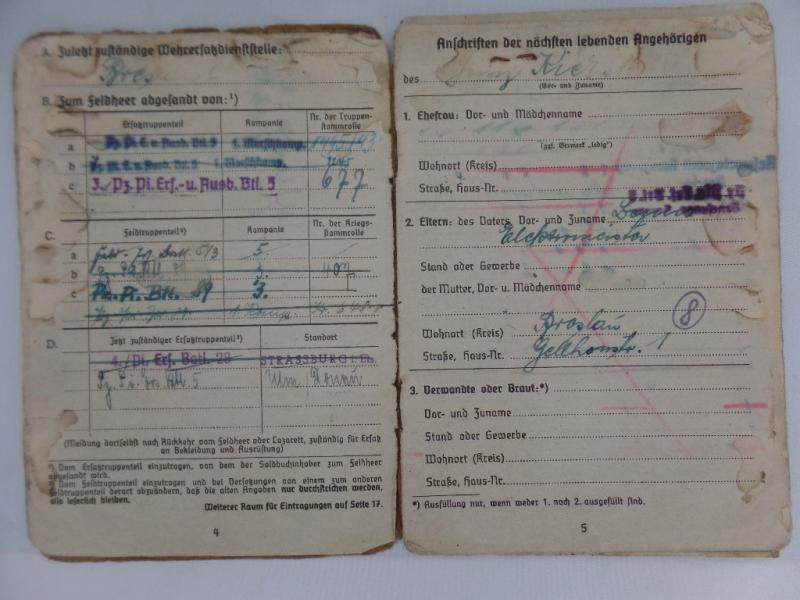 A. Zuletzt zuständige Wehrersatzdienststelle:
B. Zum Feldheer abgesandt von:¹)
Ersatztruppenteil Kompanie Nr. der Truppen-
stammrolle
a Pz. Pi. E. u. Ausb. Btl. 5 1. Marschkomp. 1445/43
b Pz. Pi. E. u. Ausb. Btl. 5 1. Marschkomp.
c 3./Pz. Pi. Ers.- u. Ausb. Btl. 5 677
C. Feldtruppenteil²) Kompanie Nr. der Kriegs-
stammrolle
a 5/3 5.
b 3.
c Pz. Pi. Btl. 89 3.
D. Jetzt zuständiger Ersatztruppenteil³) Standort
4./Pi. Ers. Batl. 28 STRASSBURG i. Els.
Btl. 5 Ulm/Donau
(Meldung dortselbst nach Rückkehr vom Feldheer oder Lazarett, zuständig für Ersatz
an Bekleidung und Ausrüstung)
¹) Vom Ersatztruppenteil einzutragen, von dem der Soldbuchinhaber zum Feldheer
abgesandt wird.
²) Vom Feldtruppenteil einzutragen und bei Versetzungen von einem zum anderen
Feldtruppenteil derart abzuändern, daß die alten Angaben nur durchstrichen werden,
also leserlich bleiben.
Weiterer Raum für Eintragungen auf Seite 17.
4
Anschriften der nächsten lebenden Angehörigen
des
(Vor- und Zuname)
1. Ehefrau: Vor- und Mädchenname
(ggf. Vermerk „ledig")
Wohnort (Kreis)
Straße, Haus-Nr.
2. Eltern: des Vaters, Vor- und Zuname
Elektmeister
Stand oder Gewerbe
der Mutter, Vor- u. Mädchenname
8
Wohnort (Kreis) Breslau
Straße, Haus-Nr. Gellhornstr. 1
3. Verwandte oder Braut:*)
Vor- und Zuname
Stand oder Gewerbe
Wohnort (Kreis)
Straße, Haus-Nr.
*) Ausfüllung nur, wenn weder 1. noch 2. ausgefüllt sind.
5